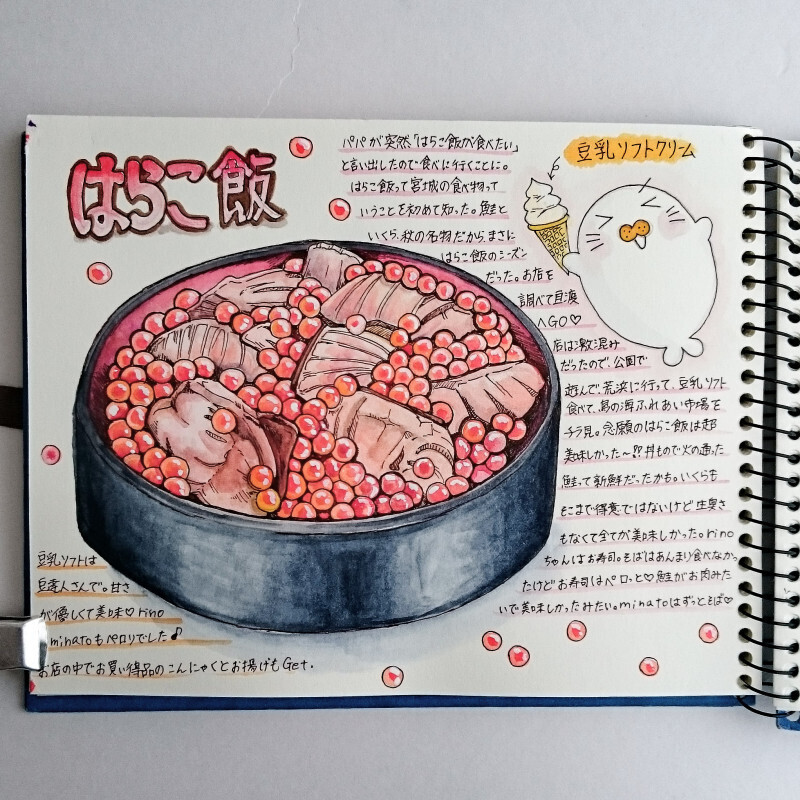 はらこ飯
パパが突然「はらこ飯が食べたい」
と言い出したので食べに行くことに。
はらこ飯って宮城の食べ物って
いうことを初めて知った。鮭と
いくら、秋の名物だから、まさに
はらこ飯のシーズン
だった。お店を
調べて亘理
へGO♡
店は激混み
だったので、公園で
遊んで、荒浜に行って、豆乳ソフト
食べて、鳥の海ふれあい市場を
チラ見。念願のはらこ飯は超
美味しかった〜!?丼もので火の通った
鮭って新鮮だったかも。いくらも
そこまで得意ではないけど生臭さ
もなくて全てが美味しかった。rino
ちゃんはお寿司。そばはあんまり食べなかっ
たけどお寿司はペロッと♡鮭がお肉みた
いで美味しかったみたい。minatoはずっとそば♡
豆乳ソフトクリーム
豆乳ソフトは
豆達人さんで。甘さ
が優しくて美味♡rino
minatoもペロリでした♪
お店の中でお買い得品のこんにゃくとお揚げもGet.